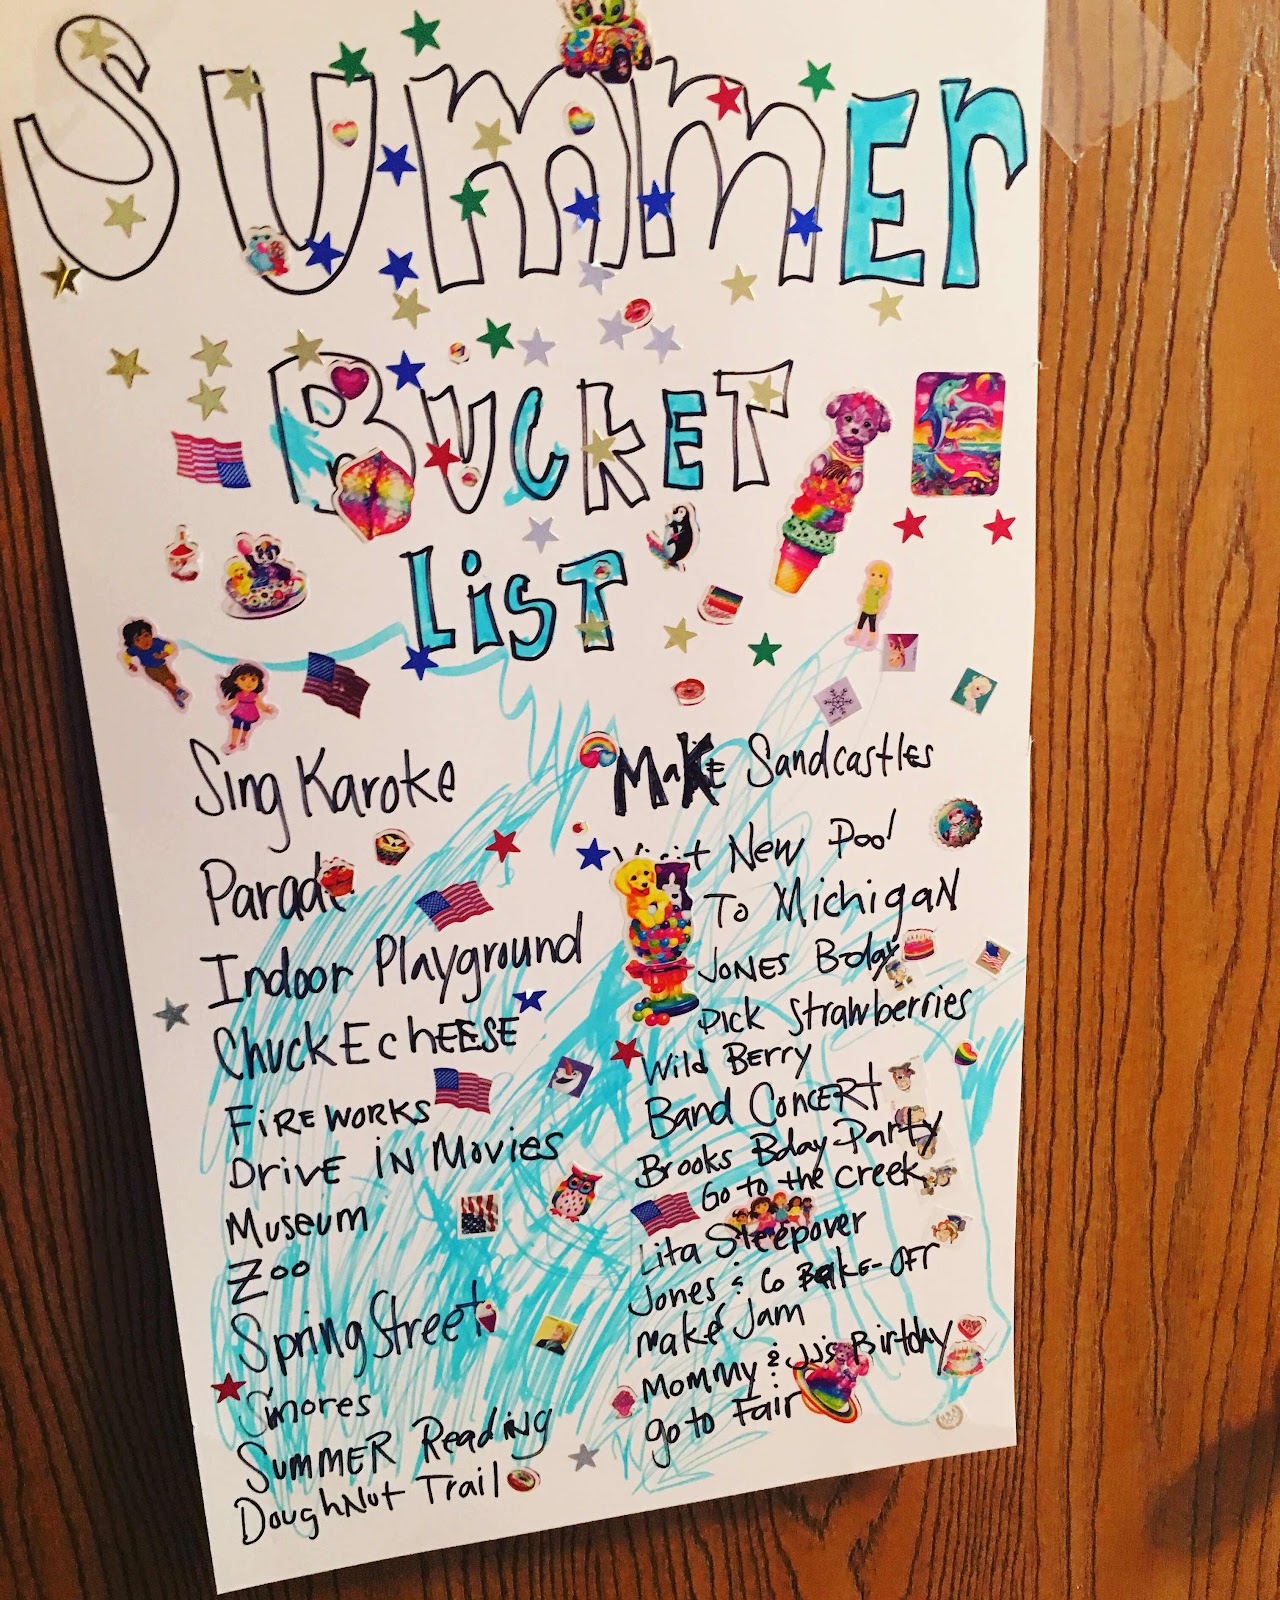 SUmmEr
BUCKET
LiST
Sing Karoke
Parade
Indoor Playground
ChuckEchEESE
FiREWORKS
DRivE iN Movies
Museum
Zoo
Spring Street
Smores
SUMMER Reading
DoughNut Trail
MaKE Sandcastles
Visit New Pool
To MichigaN
JONES Bday
Pick Strawberries
Wild BERRY
Band CONCERT
Brooks Bday Party
Go to the creek
Lita Sleepover
Jones & Co Bake-OFF
make Jam
Mommy & JJs Birtday
go to Fair